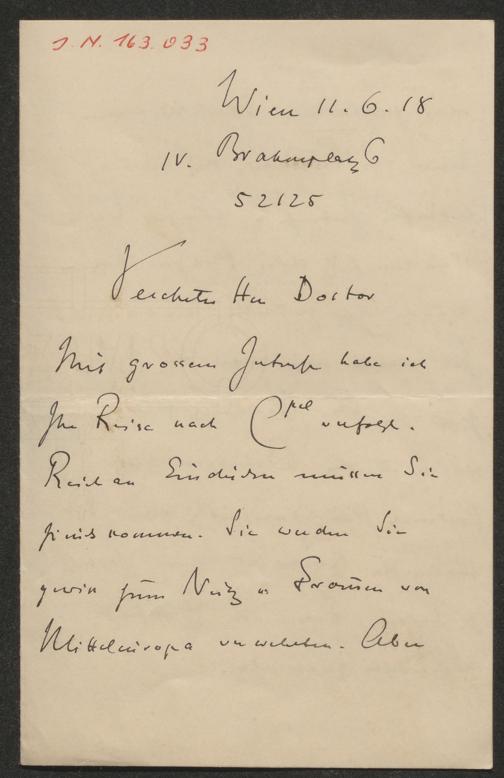 J. N. 163.033
Wien 11. 6. 18
IV. Brahmsplatz 6
52125
Verehrter Herr Doctor
Mit grossem Interesse habe ich
Ihre Reise nach Cpel verfolgt.
Reich an Eindrücken müssen Sie
zurückkommen. Sie werden Sie
gewiss zum Nutz u Frommen von
Mitteleuropa verwerthen. Aber